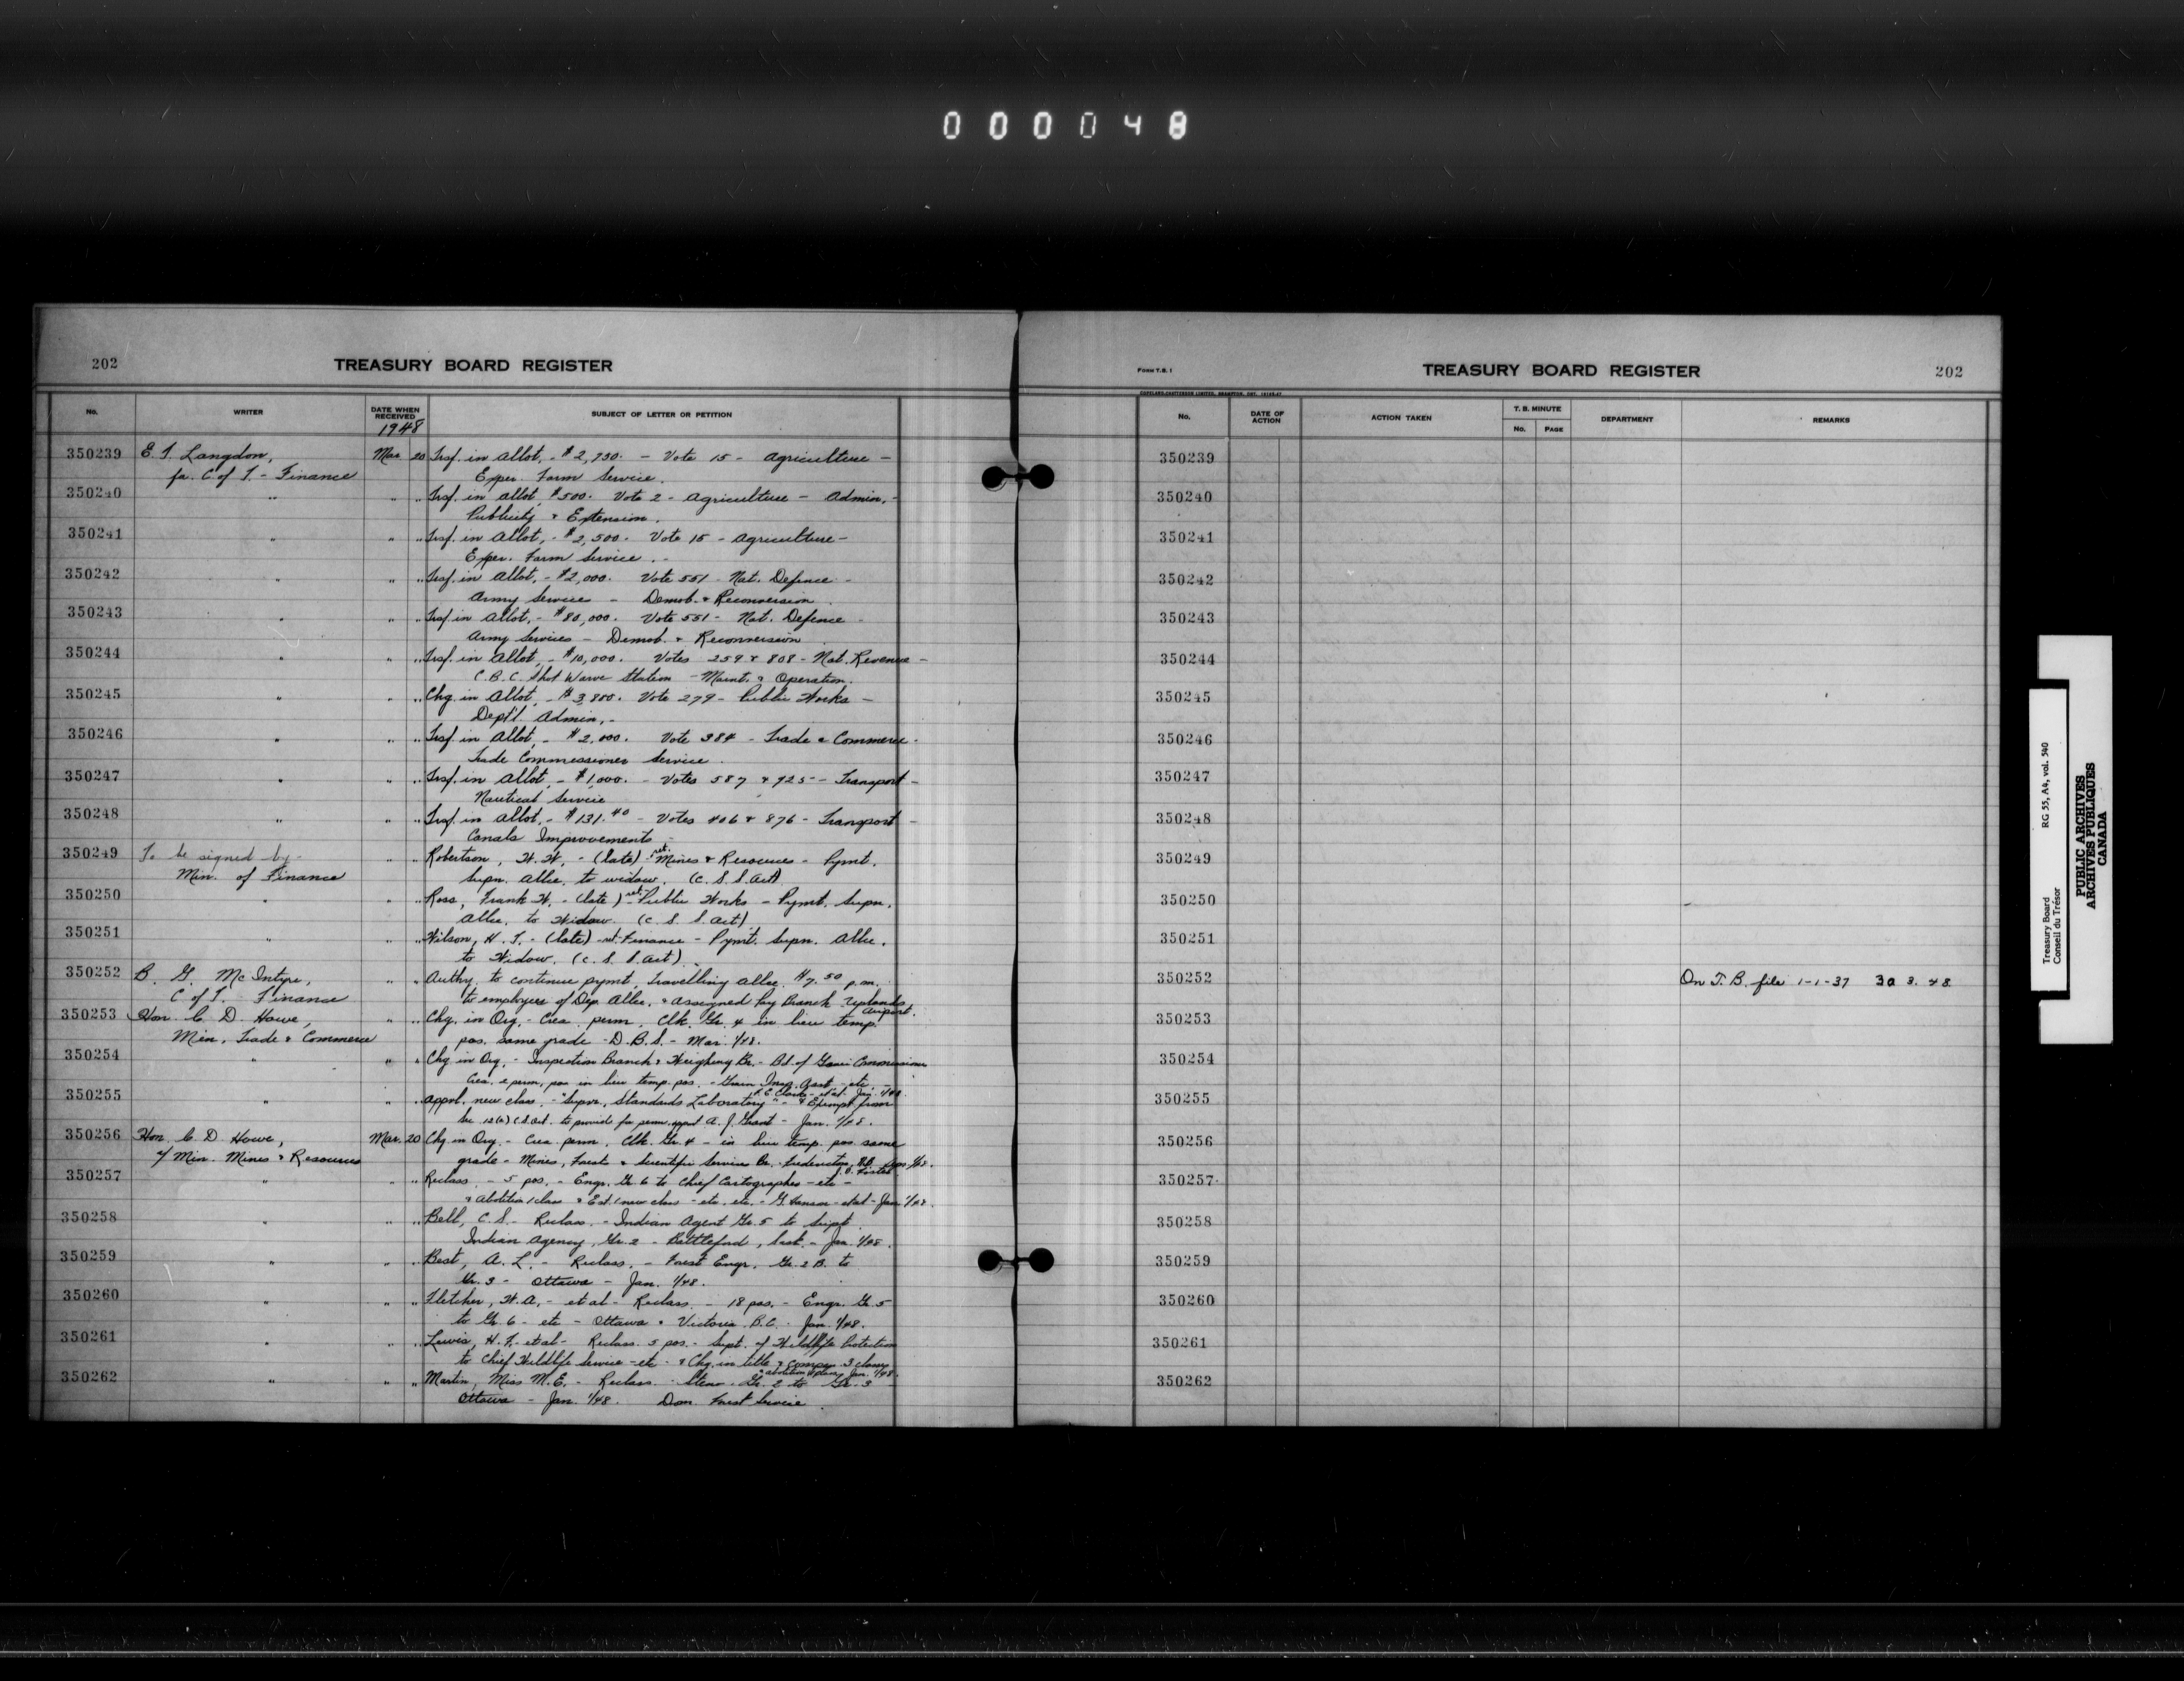 000048
202
TREASURY BOARD REGISTER
No.
WRITER
DATE WHEN RECEIVED
1948
SUBJECT OF LETTER OR PETITION
350239 E. T. Langdon, Mar. 20 Trsf. in Allot. - $2,930. - Vote 15 - Agriculture -
for C. of T. - Finance Exper. Farm Service.
350240 " " " Trsf. in Allot. $500. Vote 2 - Agriculture - Admin. -
Publicity & Extension.
350241 " " " Trsf. in Allot. - $2,500. Vote 15 - Agriculture -
Exper. Farm Service. -
350242 " " " Trsf. in Allot. - $2,000. Vote 551 - Nat. Defence -
Army Services - Demob. & Reconversion.
350243 " " " Trsf. in Allot. - $80,000. Vote 551 - Nat. Defence -
Army Services - Demob. & Reconversion
350244 " " " Trsf. in Allot. - $10,000. Votes 259 & 808 - Nat. Revenue -
C.B.C. Shot Wave Station - Maint. & Operation.
350245 " " " Chg. in Allot. - $3,800. Vote 279 - Public Works -
Dept'l. Admin. -
350246 " " " Trsf. in Allot. - $2,000. Vote 384 - Trade & Commerce -
Trade Commissioner Service.
350247 " " " Trsf. in Allot. - $1,000. - Votes 587 & 925 - Transport -
Nautical Service
350248 " " " Trsf. in Allot. - $131.40 - Votes 406 & 876 - Transport -
Canals Improvements -
350249 To be signed by - " " Robertson, W. W. - (late) - ret. Mines & Resources - Pymt.
Min. of Finance Supn. Allce. to widow. (C.S.S. Act)
350250 " " " Ross, Frank W. - (late) - ret. Public Works - Pymt. Supn.
Allce. to Widow. (C.S.S. Act)
350251 " " " Wilson, H. T. - (late) - ret. Finance - Pymt. Supn. Allce.
to Widow. (C.S.S. Act).
350252 B. G. McIntyre, " " Authy. to continue pymt. travelling allce. $7.50 p.m.
C of T. Finance to employees of Dep. Allce. & Assigned Pay Branch - Uplands Airport.
350253 Hon. C. D. Howe, " " Chg. in Org. - Crea. perm. Clk. Gr. 4 in lieu temp.
Min. Trade & Commerce pos. same grade - D.B.S. - Mar. 1/48.
350254 " " " Chg in Org. - Inspection Branch & Weighing Br. - Bd. of Grain Commissioners
Crea. perm. pos. in lieu temp. pos. - Grain Insp. Asst. - etc. -
350255 " " " Apprvl. new class. - "Supvr. Standards Laboratory" - & Exempt from
Sec. 12(a) C.S. Act. to provide for perm. appt. A. J. Grant - Jan. 1/48.
350256 Hon. C. D. Howe, Mar. 20 Chg. in Org. - Crea. perm. Clk. Gr. 4 - in lieu temp. pos. same
a/ Min. Mines & Resources grade - Mines, Forests & Scientific Services Br. - Fredericton, N.B.
350257 " " " Reclass. - 5 pos. - Engr. Gr. 6 to Chief Cartographer - etc -
& Abolition 1 class & Est. 1 new class - etc. etc. - et al - Jan 1/48.
350258 " " " Bell, C. S. - Reclass. - Indian Agent Gr. 5 to Supt.
Indian Agency, Gr. 2 - Battleford, Sask. - Jan. 1/48.
350259 " " " Best, A. L. - Reclass. - Forest Engr. Gr. 2B to
Gr. 3 - Ottawa - Jan. 1/48.
350260 " " " Fletcher, W. A. - et al - Reclass. - 18 pos. - Engr. Gr. 5
to Gr. 6 - etc - Ottawa & Victoria, B.C. - Jan. 1/48.
350261 " " " Lewis, H. F. et al - Reclass. 5 pos. - Supt. of Wildlife Protection
to Chief Wildlife Service - etc - & Chg. in title & compn. 3 classes
350262 " " " Martin, Miss M. E. - Reclass. Steno. Gr. 2 to Gr. 3
Ottawa - Jan. 1/48. Dom. Forest Service.
FORM T.B. 1
TREASURY BOARD REGISTER
202
No.
DATE OF ACTION
ACTION TAKEN
T. B. MINUTE
No.
PAGE
DEPARTMENT
REMARKS
350239
350240
350241
350242
350243
350244
350245
350246
350247
350248
350249
350250
350251
350252 On T. B. file 1-1-37 30 3. 48
350253
350254
350255
350256
350257
350258
350259
350260
350261
350262
Treasury Board RG 55, A4, vol. 540
Conseil du Trésor
PUBLIC ARCHIVES
ARCHIVES PUBLIQUES
CANADA